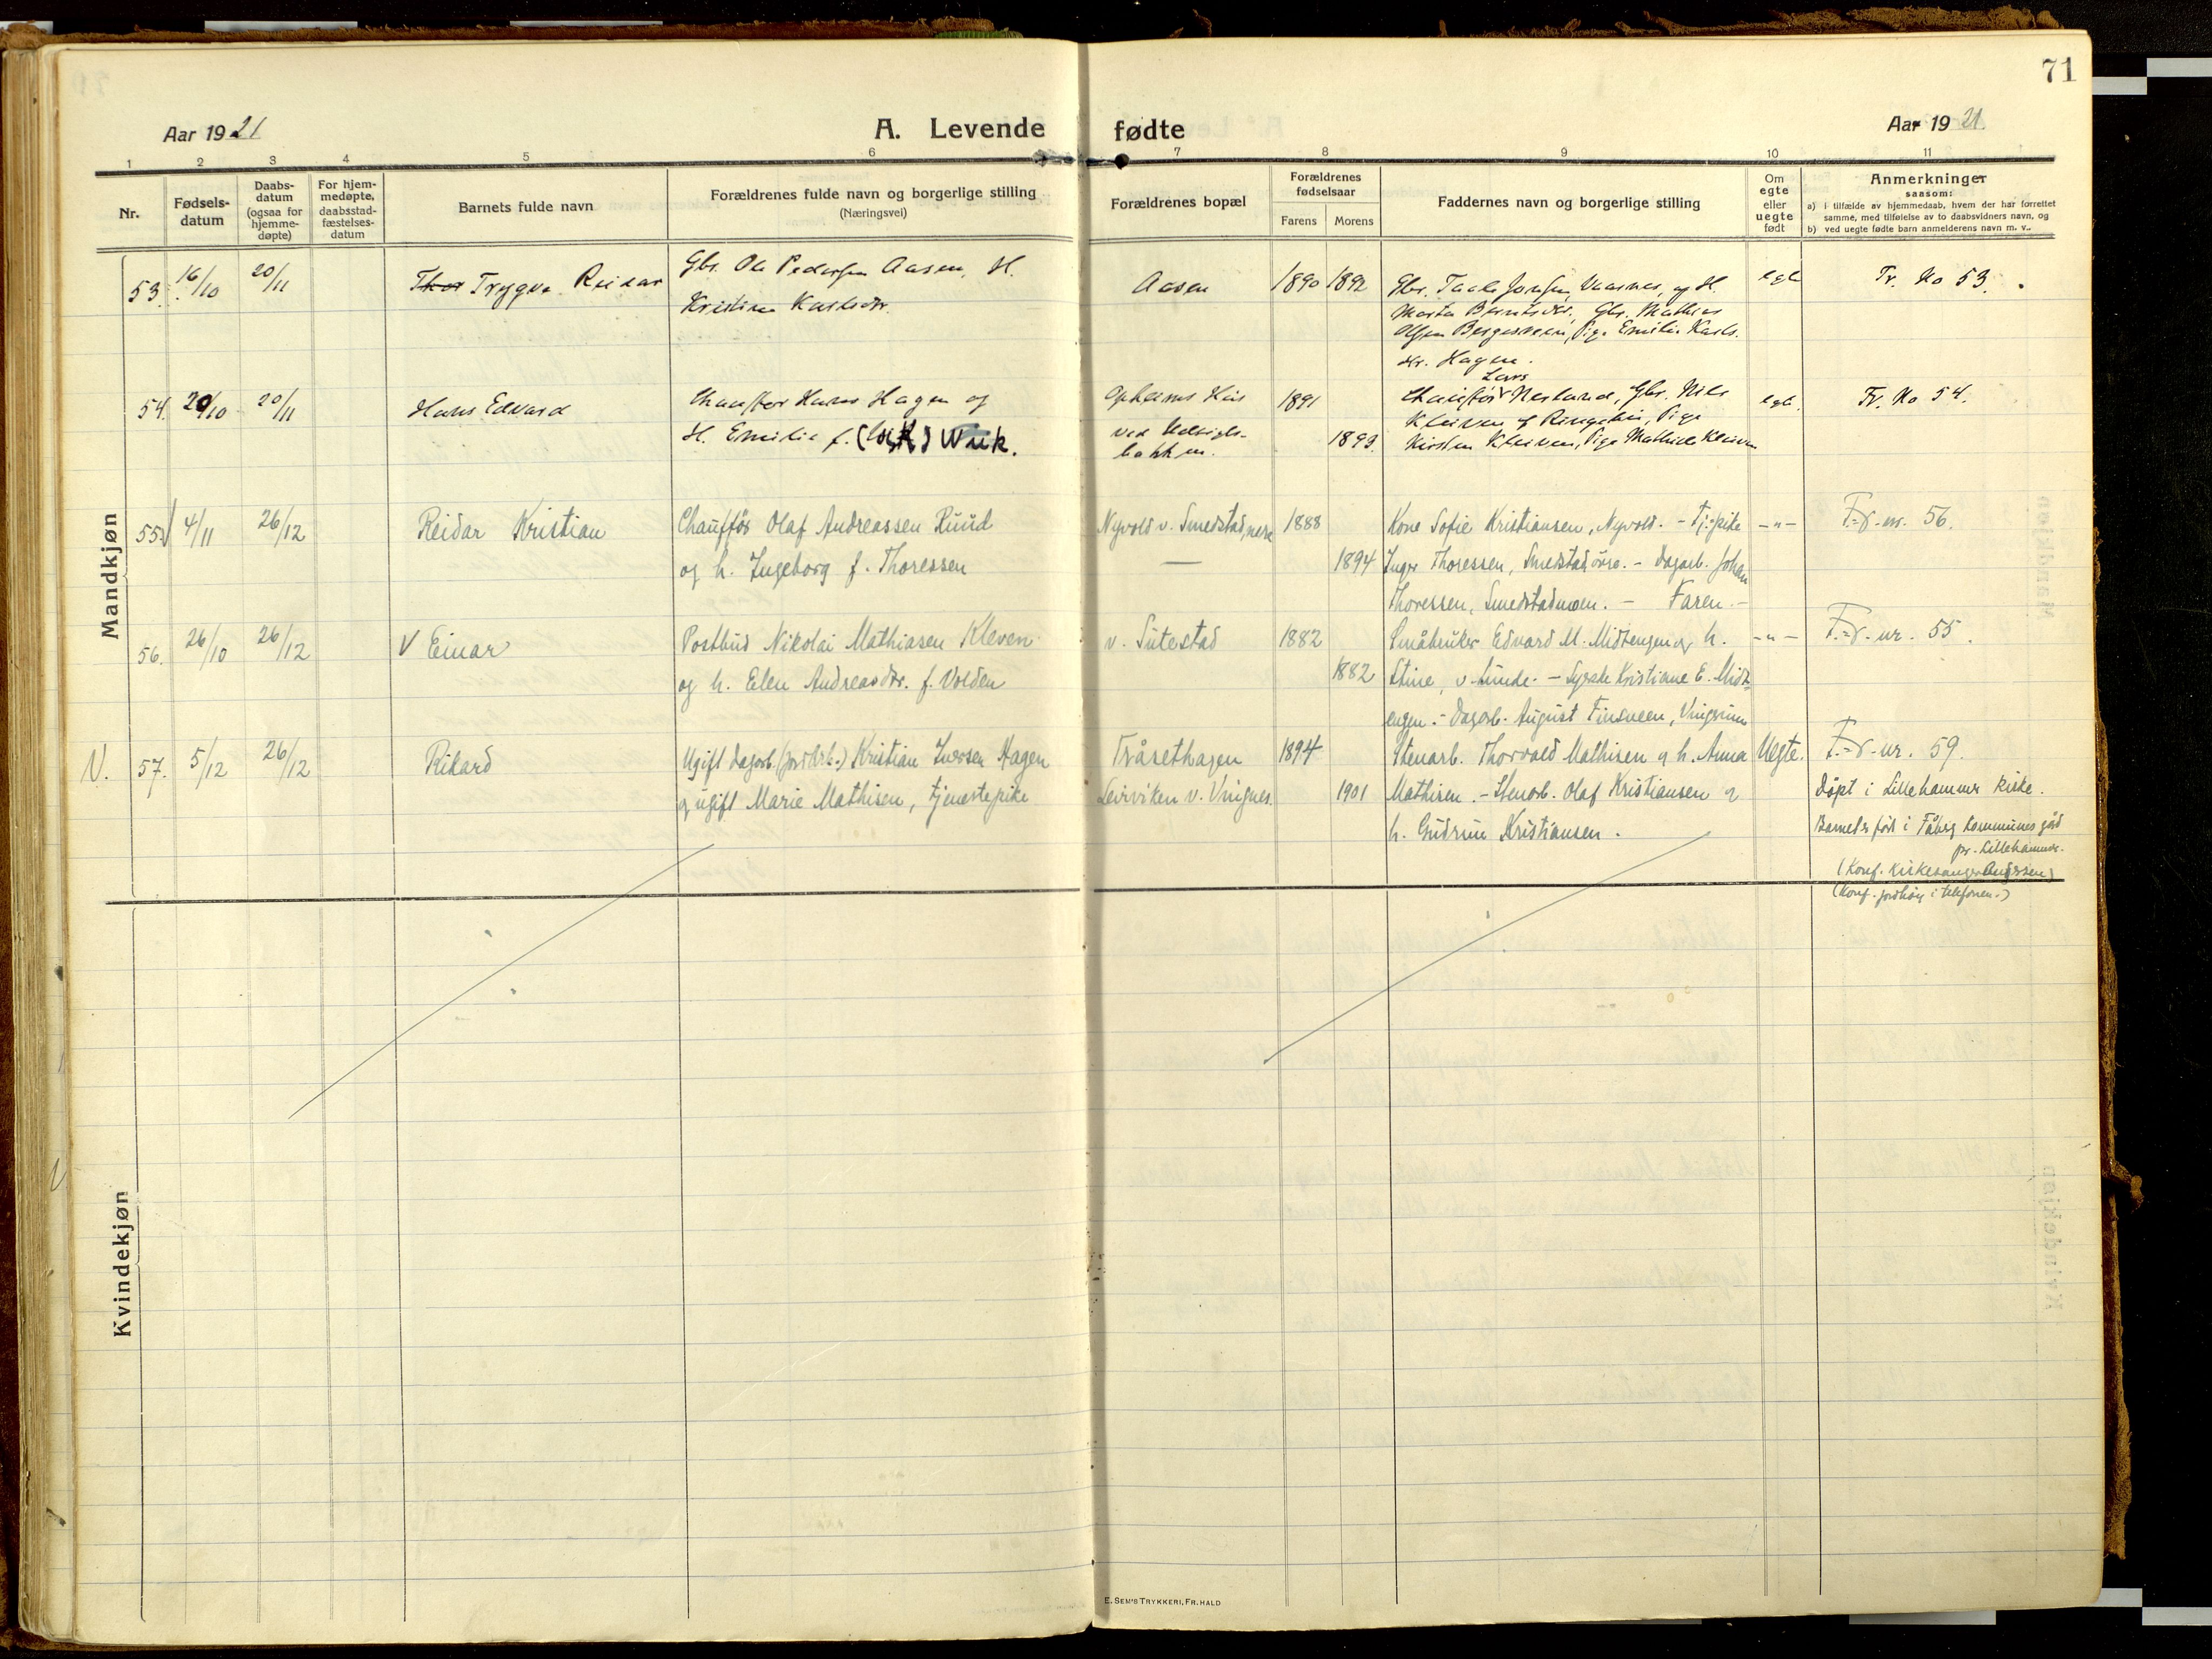 71
Aar 1921
A. Levende fødte
Aar 1921
1 2 3 4 5 6 7 8 9 10 11
Nr.
Fødsels-
datum
Daabs-
datum
(ogsaa for
hjemme-
døpte)
For hjem-
medøpte,
daabsstad-
fæstelses-
datum
Barnets fulde navn
Forældrenes fulde navn og borgerlige stilling
(Næringsvei)
Forældrenes bopæl
Forældrenes
fødselsaar
Farens Morens
Faddernes navn og borgerlige stilling
Om
egte
eller
uegte
født
Anmerkninger
saasom:
a) i tilfælde av hjemmedaab, hvem der har forrettet
samme, med tilføielse av to daabsvidners navn, og
b) ved uegte fødte barn anmelderens navn m. v..
Mandkjøn
53. 16/10 20/11 Thor Trygve Reidar
Gbr. Ole Pedersen Aasen, H.
Kristine Karlsdtr.
Aasen 1890 1892
Gbr. Taale Jonsen Vaasnes, og H.
Marta Berntsdtr., Gbr. Mathias
Olsen Bergesveen, Pige Emilie Karls-
dtr. Hagen.
egte
Fr. No 53.
54. 20/10 20/11 Hans Edvard
Chauffør Hans Hagen og
H. Emilie f. Wiik.
Opheims Hus
ved
bakken.
1891
1893.
Lars
Chauffør Neslund, Gbr. Nils
Kleiven af Ringebu, Pige
Kirsten Kleiven, Pige Mathilde Kleiven
egte.
Fr. No 54.
55 V 4/11 26/12 Reidar Kristian
Chauffør Olaf Andreassen Ruud
og h. Ingeborg f. Thoressen
Nyvold v. Smedstad, nere
—
1888
1894
Kone Sofie Kristiansen, Nyvold. - Tj.pike
Inger Thoressen, Smedstad øvre. - Dagarb. Johan
Thoressen, Smedstadmoen. - Faren. -
-"-
F.-r.-nr. 56.
56. 26/10 26/12 V Einar
Postbud Nikolai Mathiasen Kleven
og h. Elen Andreasdtr. f. Volden
v. Sutestad
1882
1882
Småbruker Edvard M. Midtengen og h.
Stine, v. Lunde. - Syerske Kristiane E. Midt-
engen. - Dagarb. August Finsveen, Vingrom
-"-
F.-r.-nr. 55.
V. 57. 5/12 26/12 Rikard
Ugift dagarb. (jordarb.) Kristian Iversen Hagen
og ugift Marie Mathisen, tjenestepike
Tråsethagen
Leirviken v. Vingnes
1894
1901
Stenarb. Thorvald Mathisen og h. Anna
Mathisen. - Stenarb. Olaf Kristiansen og
h. Gudrun Kristiansen.
Uegte.
F.-r.-nr. 59.
Døpt i Lillehammer kirke.
Barnet er født i Fåberg kommunes gård
pr. Lillehammer.
(Konf. kirkesanger Andersen)
(Konf. i telefonen.)
Kvindekjøn
E. SEM'S TRYKKERI, FR.HALD